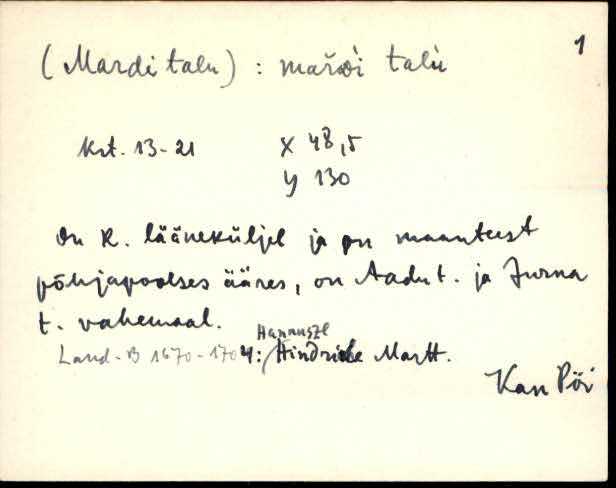 1
(Mardi talu) : mařdi talu
Krt. 13-21 X 48,5
y 130
On K. lääneküljel ja on maanteest
põhjapoolses ääres, on Aadu t. ja Jurna
t. vahemaal.
Hannuszl
Land-B 1670-1704: Hindricke Martt.
Kan Pöi